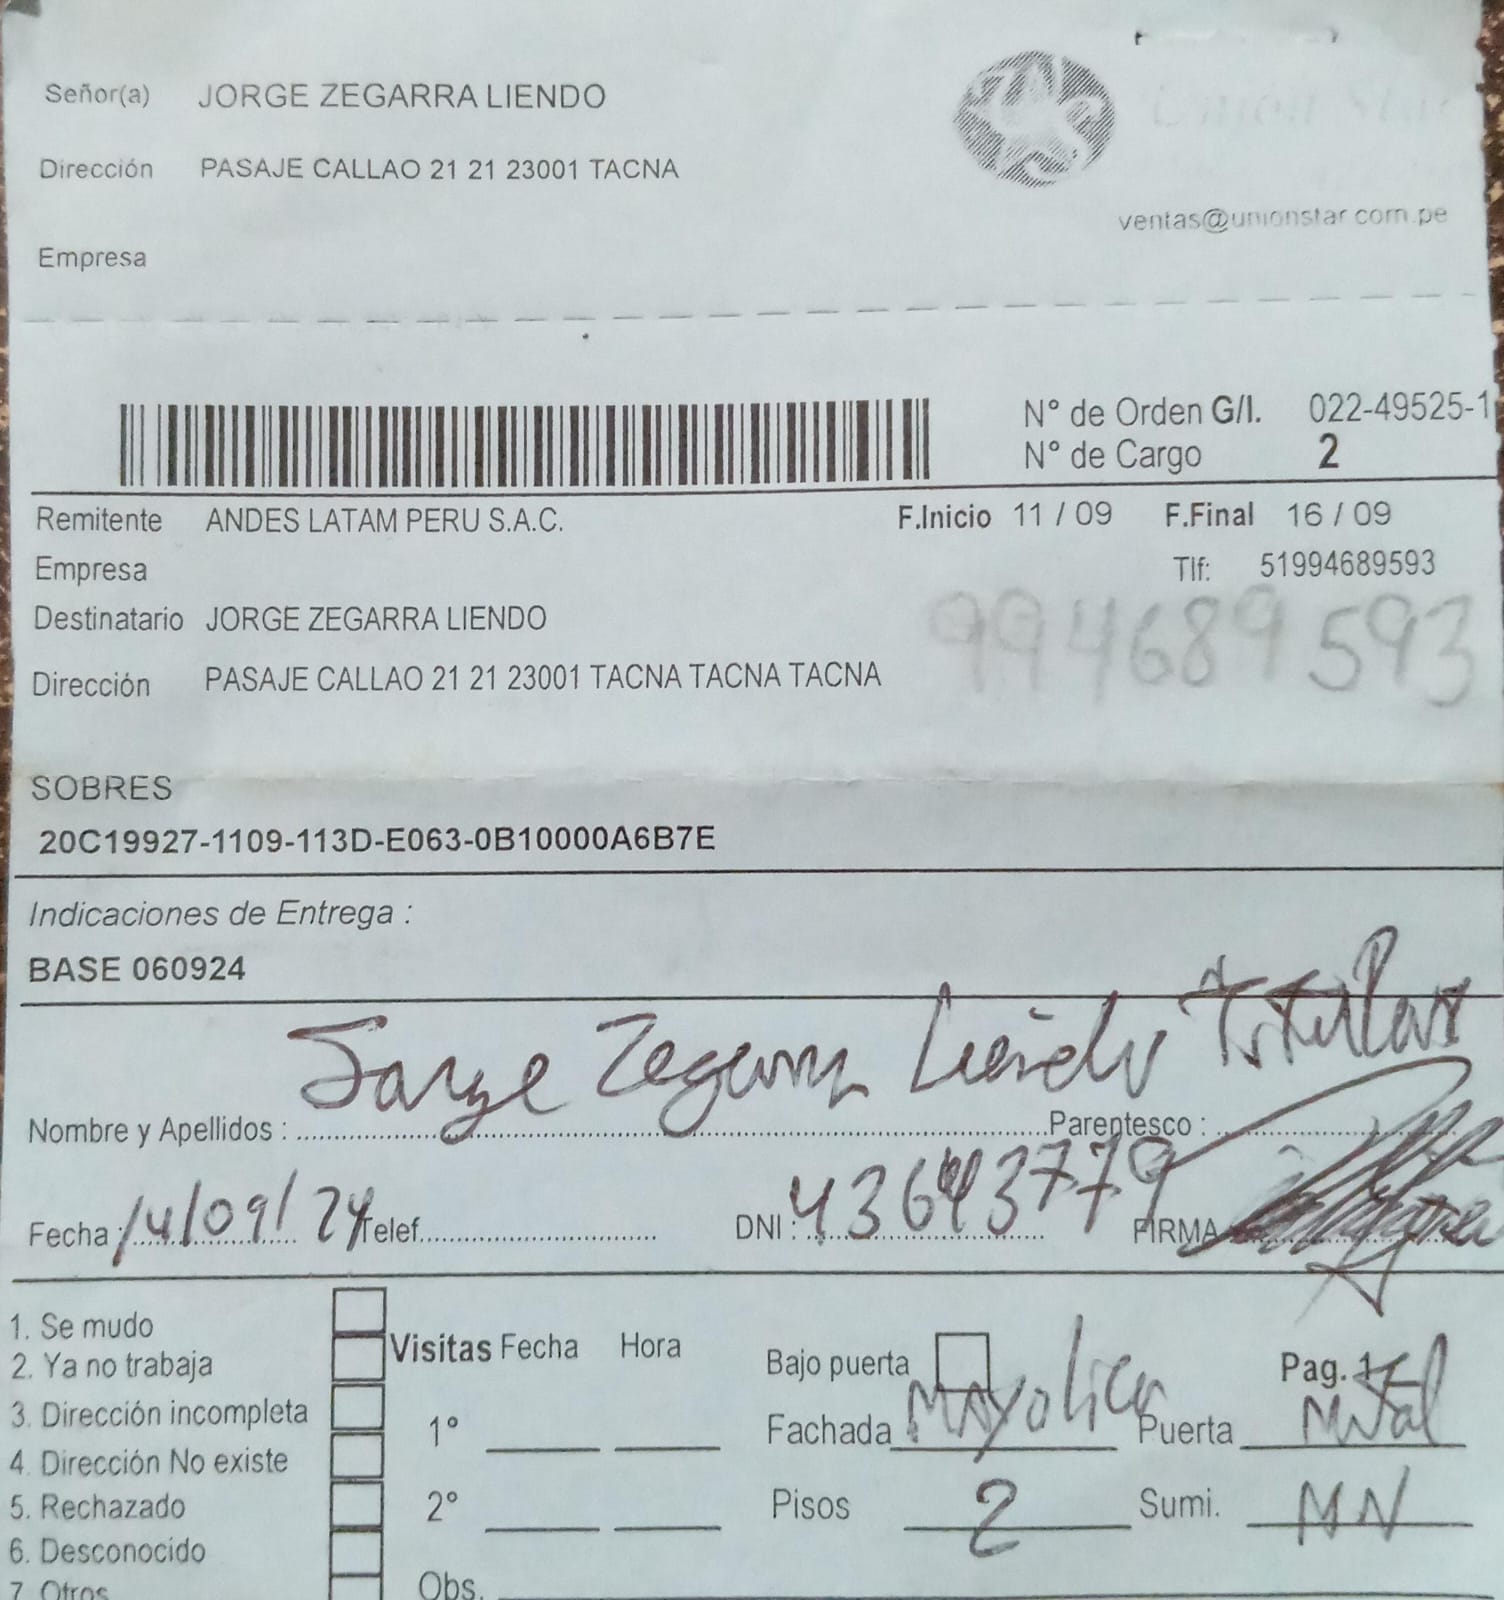 Señor(a) JORGE ZEGARRA LIENDO
Union Star
Dirección PASAJE CALLAO 21 21 23001 TACNA
ventas@unionstar.com.pe
Empresa
N° de Orden G/I. 022-49525-1
N° de Cargo 2
Remitente ANDES LATAM PERU S.A.C. F.Inicio 11 / 09 F.Final 16 / 09
Empresa Tlf: 51994689593
Destinatario JORGE ZEGARRA LIENDO 994689593
Dirección PASAJE CALLAO 21 21 23001 TACNA TACNA TACNA
SOBRES
20C19927-1109-113D-E063-0B10000A6B7E
Indicaciones de Entrega :
BASE 060924
Jorge Zegarra Liendo Titular
Nombre y Apellidos : Parentesco :
Fecha : 14/09/24 Telef. DNI : 43643779 FIRMA
1. Se mudo
2. Ya no trabaja Visitas Fecha Hora Bajo puerta Pag. 1
3. Dirección incompleta 1° Fachada Mayolica Puerta Metal
4. Dirección No existe
5. Rechazado 2° Pisos 2 Sumi. MN
6. Desconocido
7. Otros Obs.